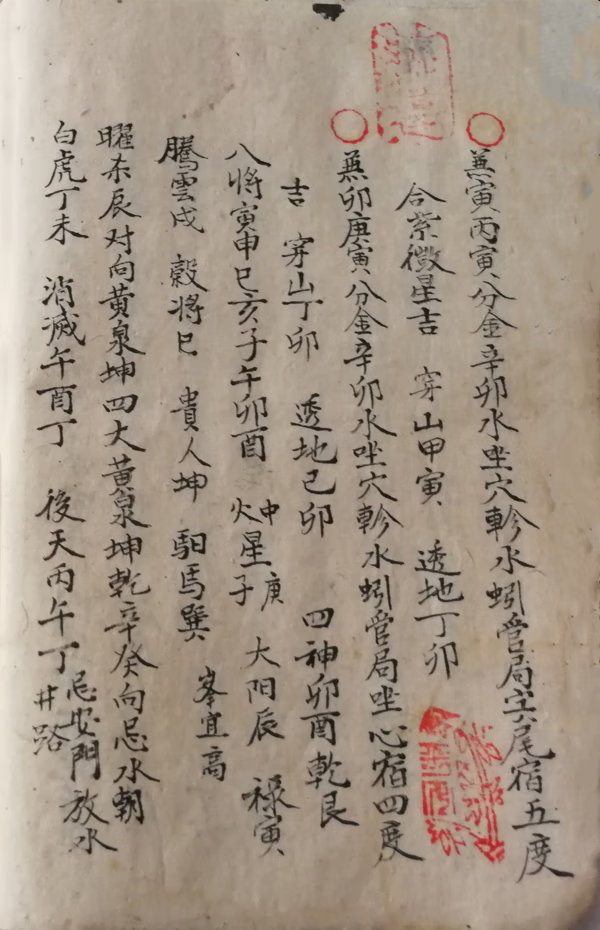 兼寅丙寅分金辛卯水坐穴軫水蚓管局坐尾宿五度
合紫微星吉 穿山甲寅 透地丁卯
兼卯庚寅分金辛卯水坐穴軫水蚓管局坐心宿四度
吉 穿山丁卯 透地己卯 四神卯酉乾艮
八将寅申巳亥子午卯酉 火星子 中庚 大阳辰 禄寅
騰雲戌 毅将巳 貴人坤 馹馬巽 峯宜高
曜杀辰对向黄泉坤四大黄泉坤乾辛癸向忌水朝
白虎丁未 消滅午酉丁 後天丙午丁忌安門放水井路